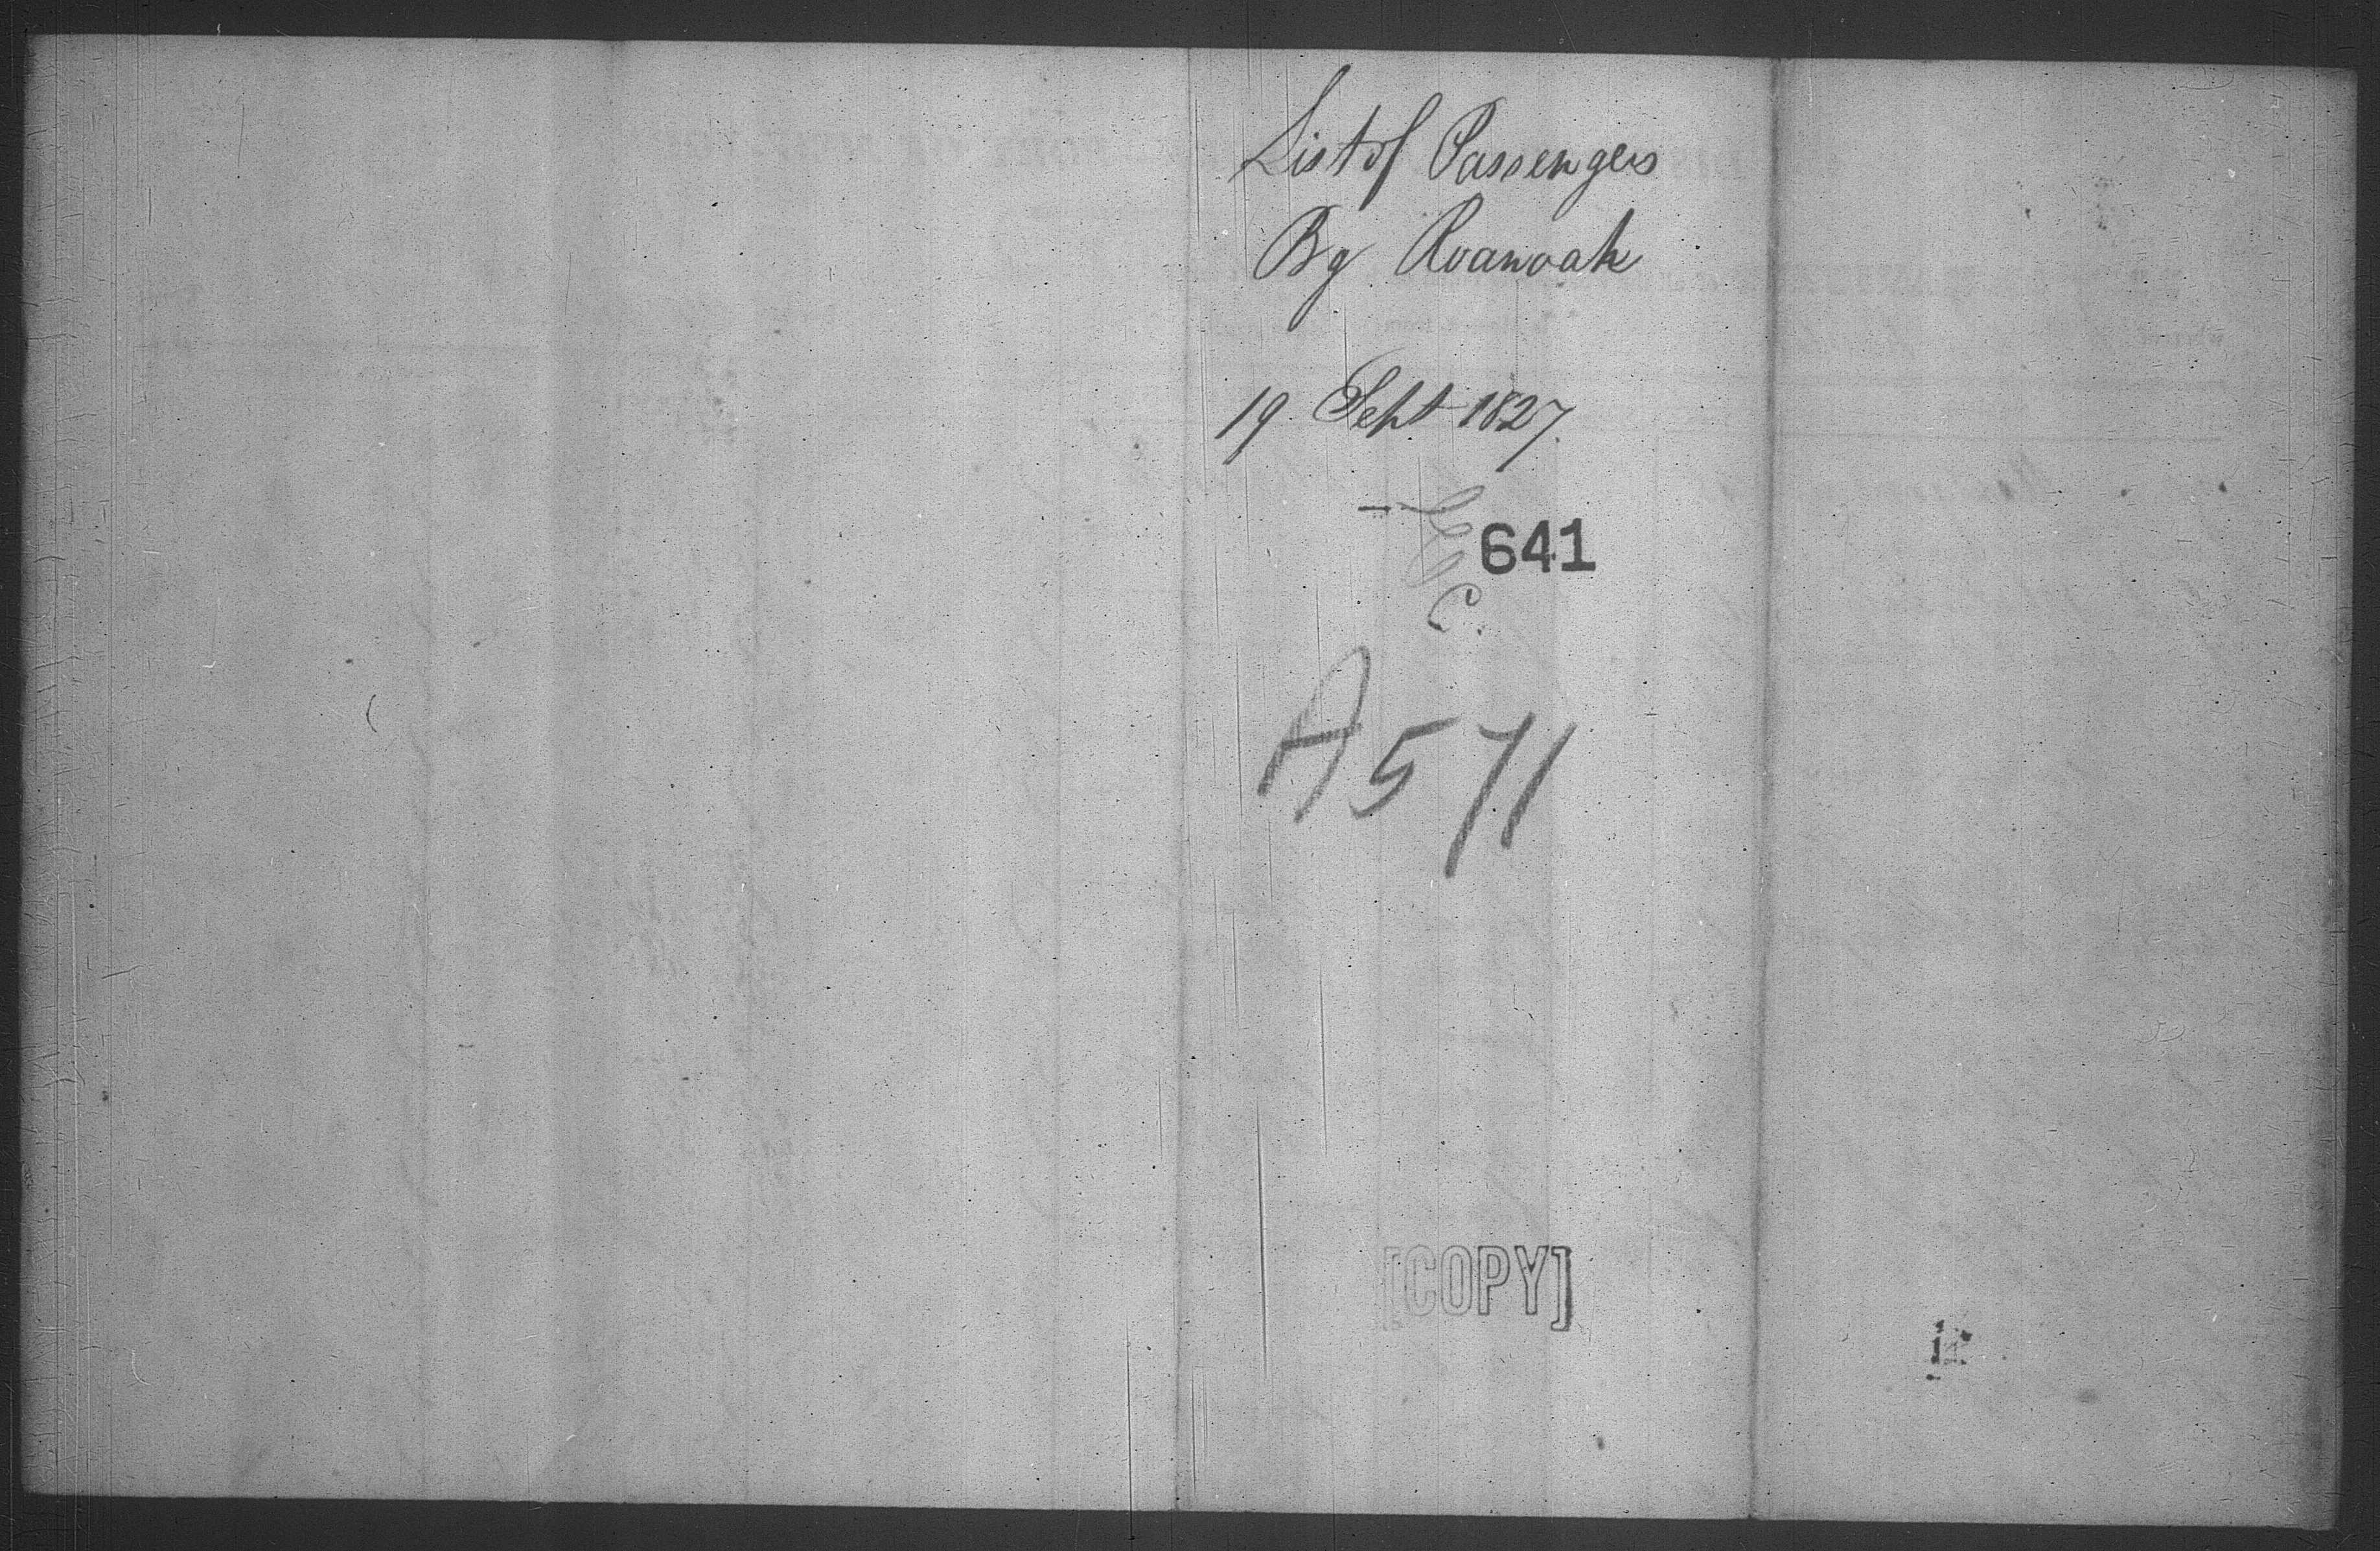 List of Passengers
Bg Roanoak
19 Sept 1827.
641
A571
[COPY]